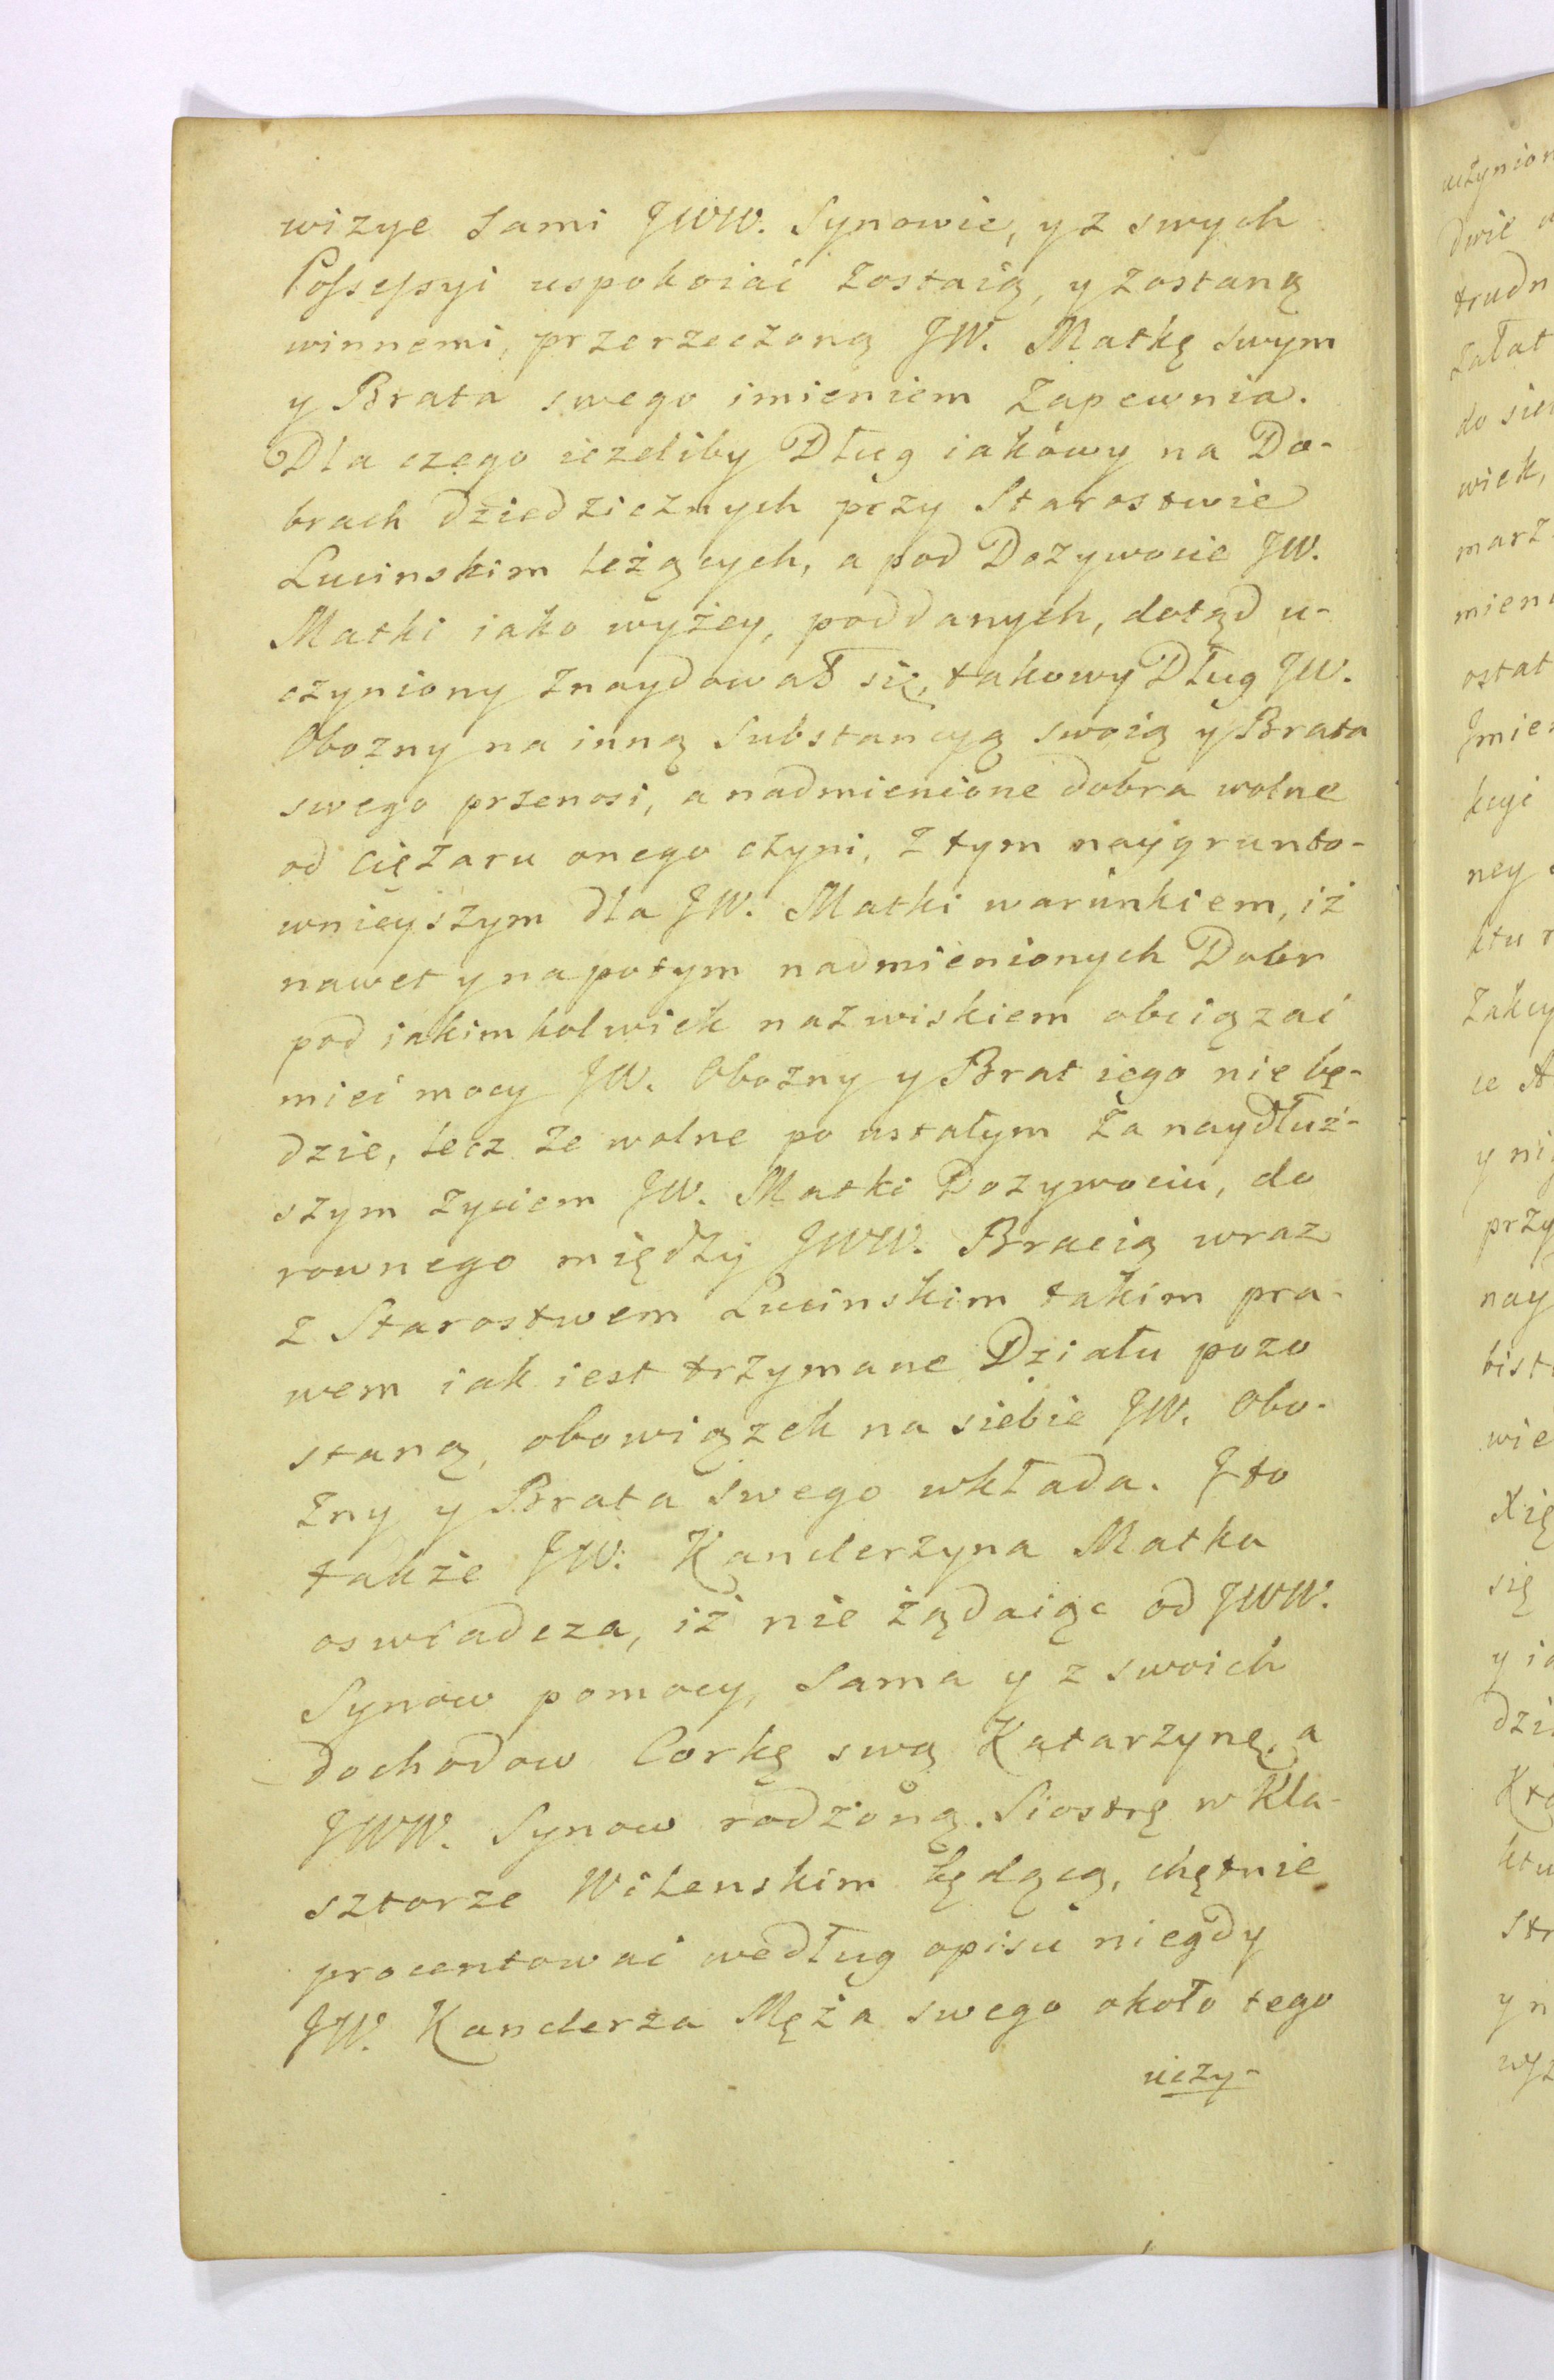 wizye sami JWW. Synowie, y z swych
Possessyi uspokoiać zostaią, y zostaną
winnemi, przerzeczoną JW. Matkę swym
y Brata swego imieniem zapewnia.
Dla czego ieżeliby Dług iakowy na Do-
brach dziedzicznych przy Starostwie
Lucinskim leżących, a pod Dożywocie JW.
Matki iako wyżey, poddanych, dotąd u-
czyniony znaydował się, takowy Dług JW.
Obozny na inną Substancyą swoią y Brata
swego przenosi, a nadmienione dobra wolne
od ciężaru onego czyni, z tym naygrunto-
wnieyszym dla JW. Matki warunkiem, iż
nawet y napotym nadmienionych Dobr
pod iakimkolwiek nazwiskiem obciązać
mieć mocy JW. Obozny y Brat iego nie bę-
dzie, lecz że wolne po ustałym za naydłuż-
szym życiem JW. Matki Dozywociu, do
rownego między JWW. Bracią wraz
z Starostwem Lucinskim takim pra-
wem iak iest trzymane Działu pozo
staną, obowiązek na siebie JW. Obo-
zny y Brata swego wkłada. J to
także JW. Kanclerzyna Matka
oswiadcza, iż nie żądaiąc od JWW.
Synow pomocy, sama y z swoich
dochodow Corkę swą Katarzynę, a
JWW. Synow rodzoną Siostrę w Kla-
sztorze Wilenskim będącą, chętnie
procentować według opisu niegdy
JW. Kanclerza Męża swego około tego
uczy-